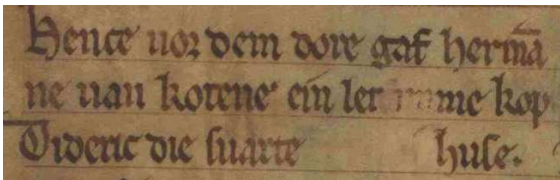 Hence uor dem dore gaf hermā
ne uan kotene ein let me kop
Tideric die suarte huse.